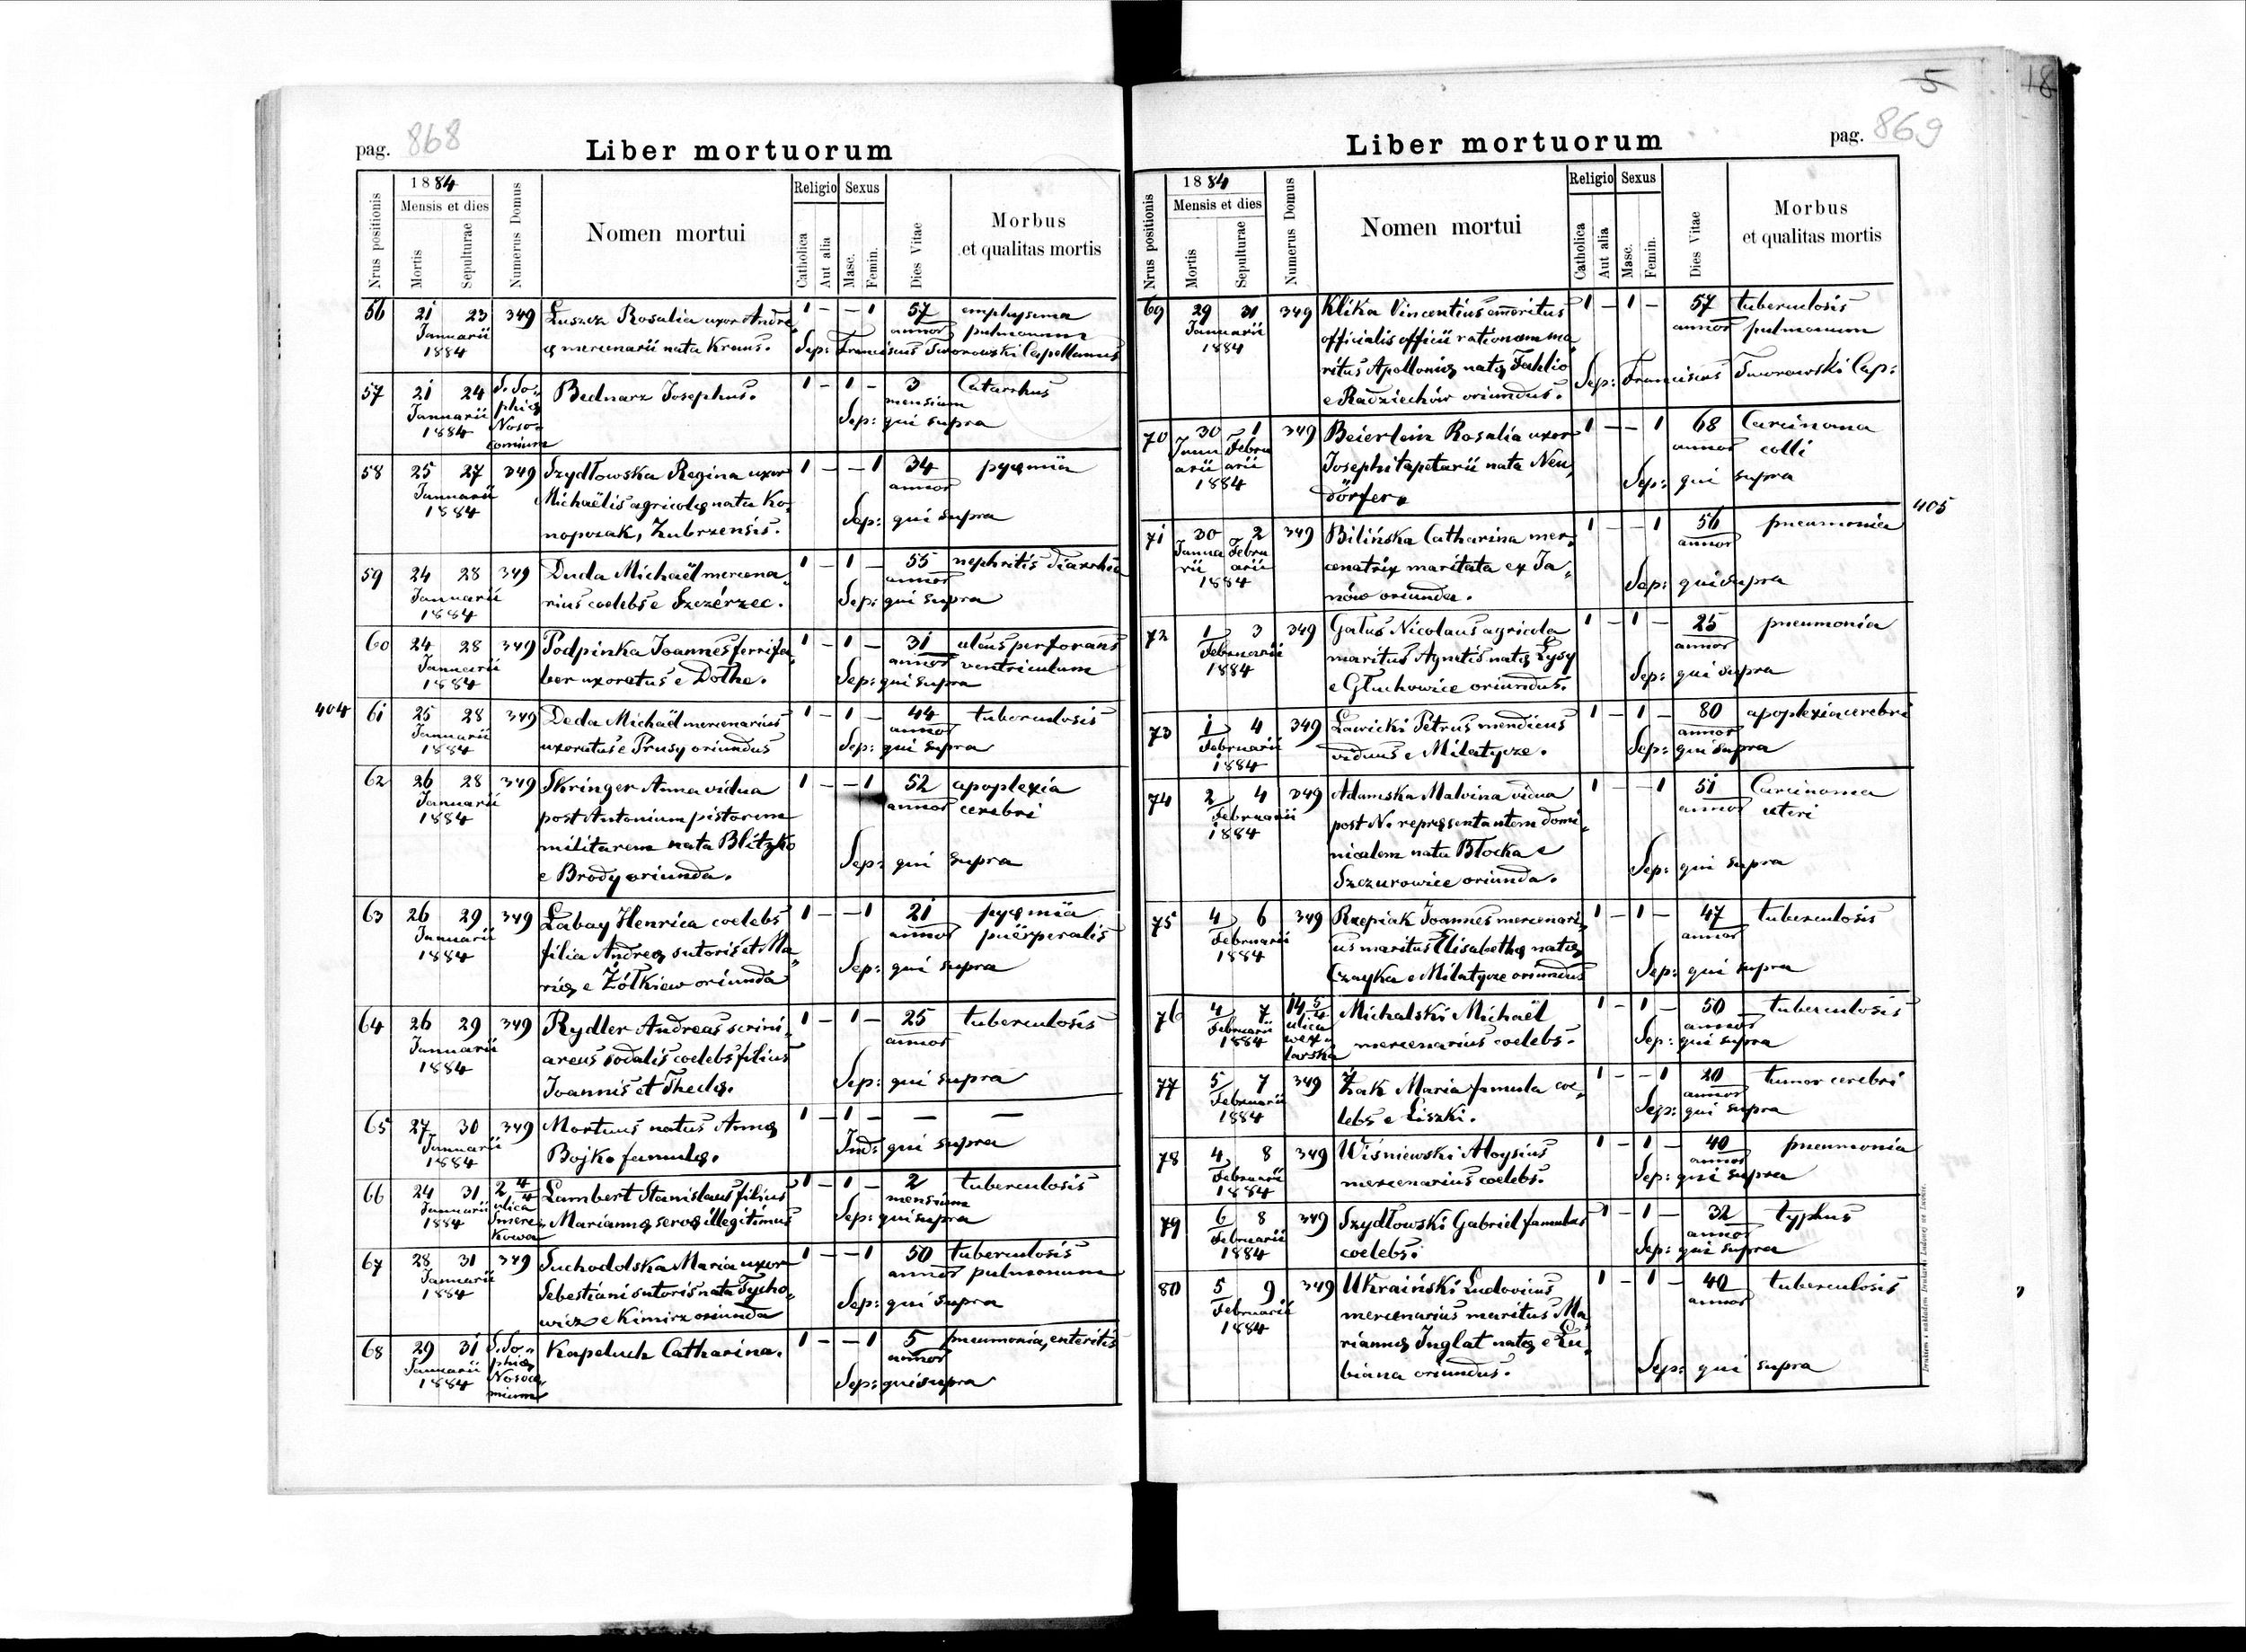 pag. 868
Liber mortuorum
Nrus positionis
1884
Mensis et dies
Mortis
Sepulturae
Numerus Domus
Nomen mortui
Religio
Catholica
Aut alia
Sexus
Masc.
Femin.
Dies Vitae
Morbus
et qualitas mortis
56 21 23 349 Łuszcz Rosalia uxor Andre 1 – – 1 57 emphysema
Januarii annor pulmonum
1884 ę mercenarii nata Kraus. Sep: Franciscus Tworowski Capellanus
57 21 24 S. So= Bednarz Josephus. 1 – 1 – 3 Catarrhus
Januarii phię mensium
1884 Noso= Sep: qui supra
comium
58 25 27 349 Szydłowska Regina uxor 1 – – 1 34 pyęmia
Januarii Michaëlis agricolę nata Ko= annor
1884 nopczak, Zubrzensis. Sep: qui supra
59 24 28 349 Duda Michaël mercena= 1 – 1 – 55 nephritis diarrhea
Januarii annor
1884 rius coelebs e Szczérzec. Sep: qui supra
60 24 28 349 Podpinka Joannes ferrifa= 1 – 1 – 31 ulcus perforans
Januarii annor ventriculum
1884 ber uxoratus e Dolhe. Sep: qui supra
404 61 25 28 349 Deda Michaël mercenarius 1 – 1 – 44 tuberculosis
Januarii annor
1884 uxoratus e Prusy oriundus Sep: qui supra
62 26 28 349 Skringer Anna vidua 1 – – 1 52 apoplexia
Januarii post Antonium pistorem annor cerebri
1884 militarem nata Blitzko
e Brody oriunda. Sep: qui supra
63 26 29 349 Łabay Henrica coelebs 1 – – 1 21 pyęmia
Januarii filia Andreę sutoris et Ma= annor puërperalis
1884 rię e Żółkiew oriunda Sep: qui supra
64 26 29 349 Rydler Andreas scrini= 1 – 1 – 25 tuberculosis
Januarii areus sodalis coelebs filius annor
1884 Joannis et Theclę. Sep: qui supra
65 27 30 349 Mortuus natus Annę 1 – 1 – – –
Januarii
1884 Bojko famulę. Ind: qui supra
66 24 31 2 4/4 Lambert Stanislaus filius 1 – 1 – 2 tuberculosis
Januarii ulica mensium
1884 Smere= Mariannę servę illegitimus Sep: qui supra
kowa
67 28 31 349 Suchodolska Maria uxor 1 – – 1 50 tuberculosis
Januarii Sebestiani sutoris nata Tycho= annor pulmonum
1884 wicz e Kimirz oriunda Sep: qui supra
68 29 31 S. So= Kapeluch Catharina. 1 – – 1 5 pneumonia, enteritis
Januarii phię annor
1884 Nosoco= Sep: qui supra
mium
5
18
Liber mortuorum
pag. 869
Nrus positionis
1884
Mensis et dies
Mortis
Sepulturae
Numerus Domus
Nomen mortui
Religio
Catholica
Aut alia
Sexus
Masc.
Femin.
Dies Vitae
Morbus
et qualitas mortis
69 29 31 349 Klika Vincentius emeritus 1 – 1 – 57 tuberculosis
Januarii officialis officii rationum ma= annor pulmonum
1884 ritus Apollonię natę Fahlio Sep: Franciscus Tworowski Cap:
e Radziechów oriundus.
70 30 1 349 Beierlein Rosalia uxor 1 – – 1 68 Carcinoma
Janu Febru Josephi tapetarii nata Neu= annor colli
arii arii
1884 dörfer. Sep: qui supra
71 30 2 349 Bilińska Catharina mer= 1 – – 1 56 pneumonia 405
Janua Febru cenatrix maritata ex Ja= annor
rii arii
1884 nów oriunda. Sep: qui supra
72 1 3 349 Gałus Nicolaus agricola 1 – 1 – 25 pneumonia
Februarii maritus Agnetis natę Łysy annor
1884 e Głuchowice oriundus. Sep: qui supra
73 1 4 349 Ławicki Petrus mendicus 1 – 1 – 80 apoplexia cerebri
Februarii annor
1884 viduus e Milatycze. Sep: qui supra
74 2 4 349 Adamska Malvina vidua 1 – – 1 51 Carcinoma
Februarii post N. repręsentantem domi= annor uteri
1884 nicalem nata Błocka e
Szczurowice oriunda. Sep: qui supra
75 4 6 349 Rzepiak Joannes mercenari= 1 – 1 – 47 tuberculosis
Februarii us maritus Elisabethę natę annor
1884 Czayka e Milatycze oriundus Sep: qui supra
76 4 7 14 5/4 Michalski Michaël 1 – 1 – 50 tuberculosis
Februarii ulica annor
1884 wex= mercenarius coelebs. Sep: qui supra
larska
77 5 7 349 Żak Maria famula coe= 1 – – 1 20 tumor cerebri
Februarii annor
1884 lebs e Liszki. Sep: qui supra
78 4 8 349 Wiśniewski Aloysius 1 – 1 – 40 pneumonia
Februarii annor
1884 mercenarius coelebs. Sep: qui supra
79 6 8 349 Szydłowski Gabriel famulus 1 – 1 – 32 typhus
Februarii annor
1884 coelebs. Sep: qui supra
80 5 9 349 Ukraiński Ludovicus 1 – 1 – 40 tuberculosis
Februarii mercenarius maritus Ma= annor
1884 riannę Inglat natę e Lu=
biana oriundus. Sep: qui supra